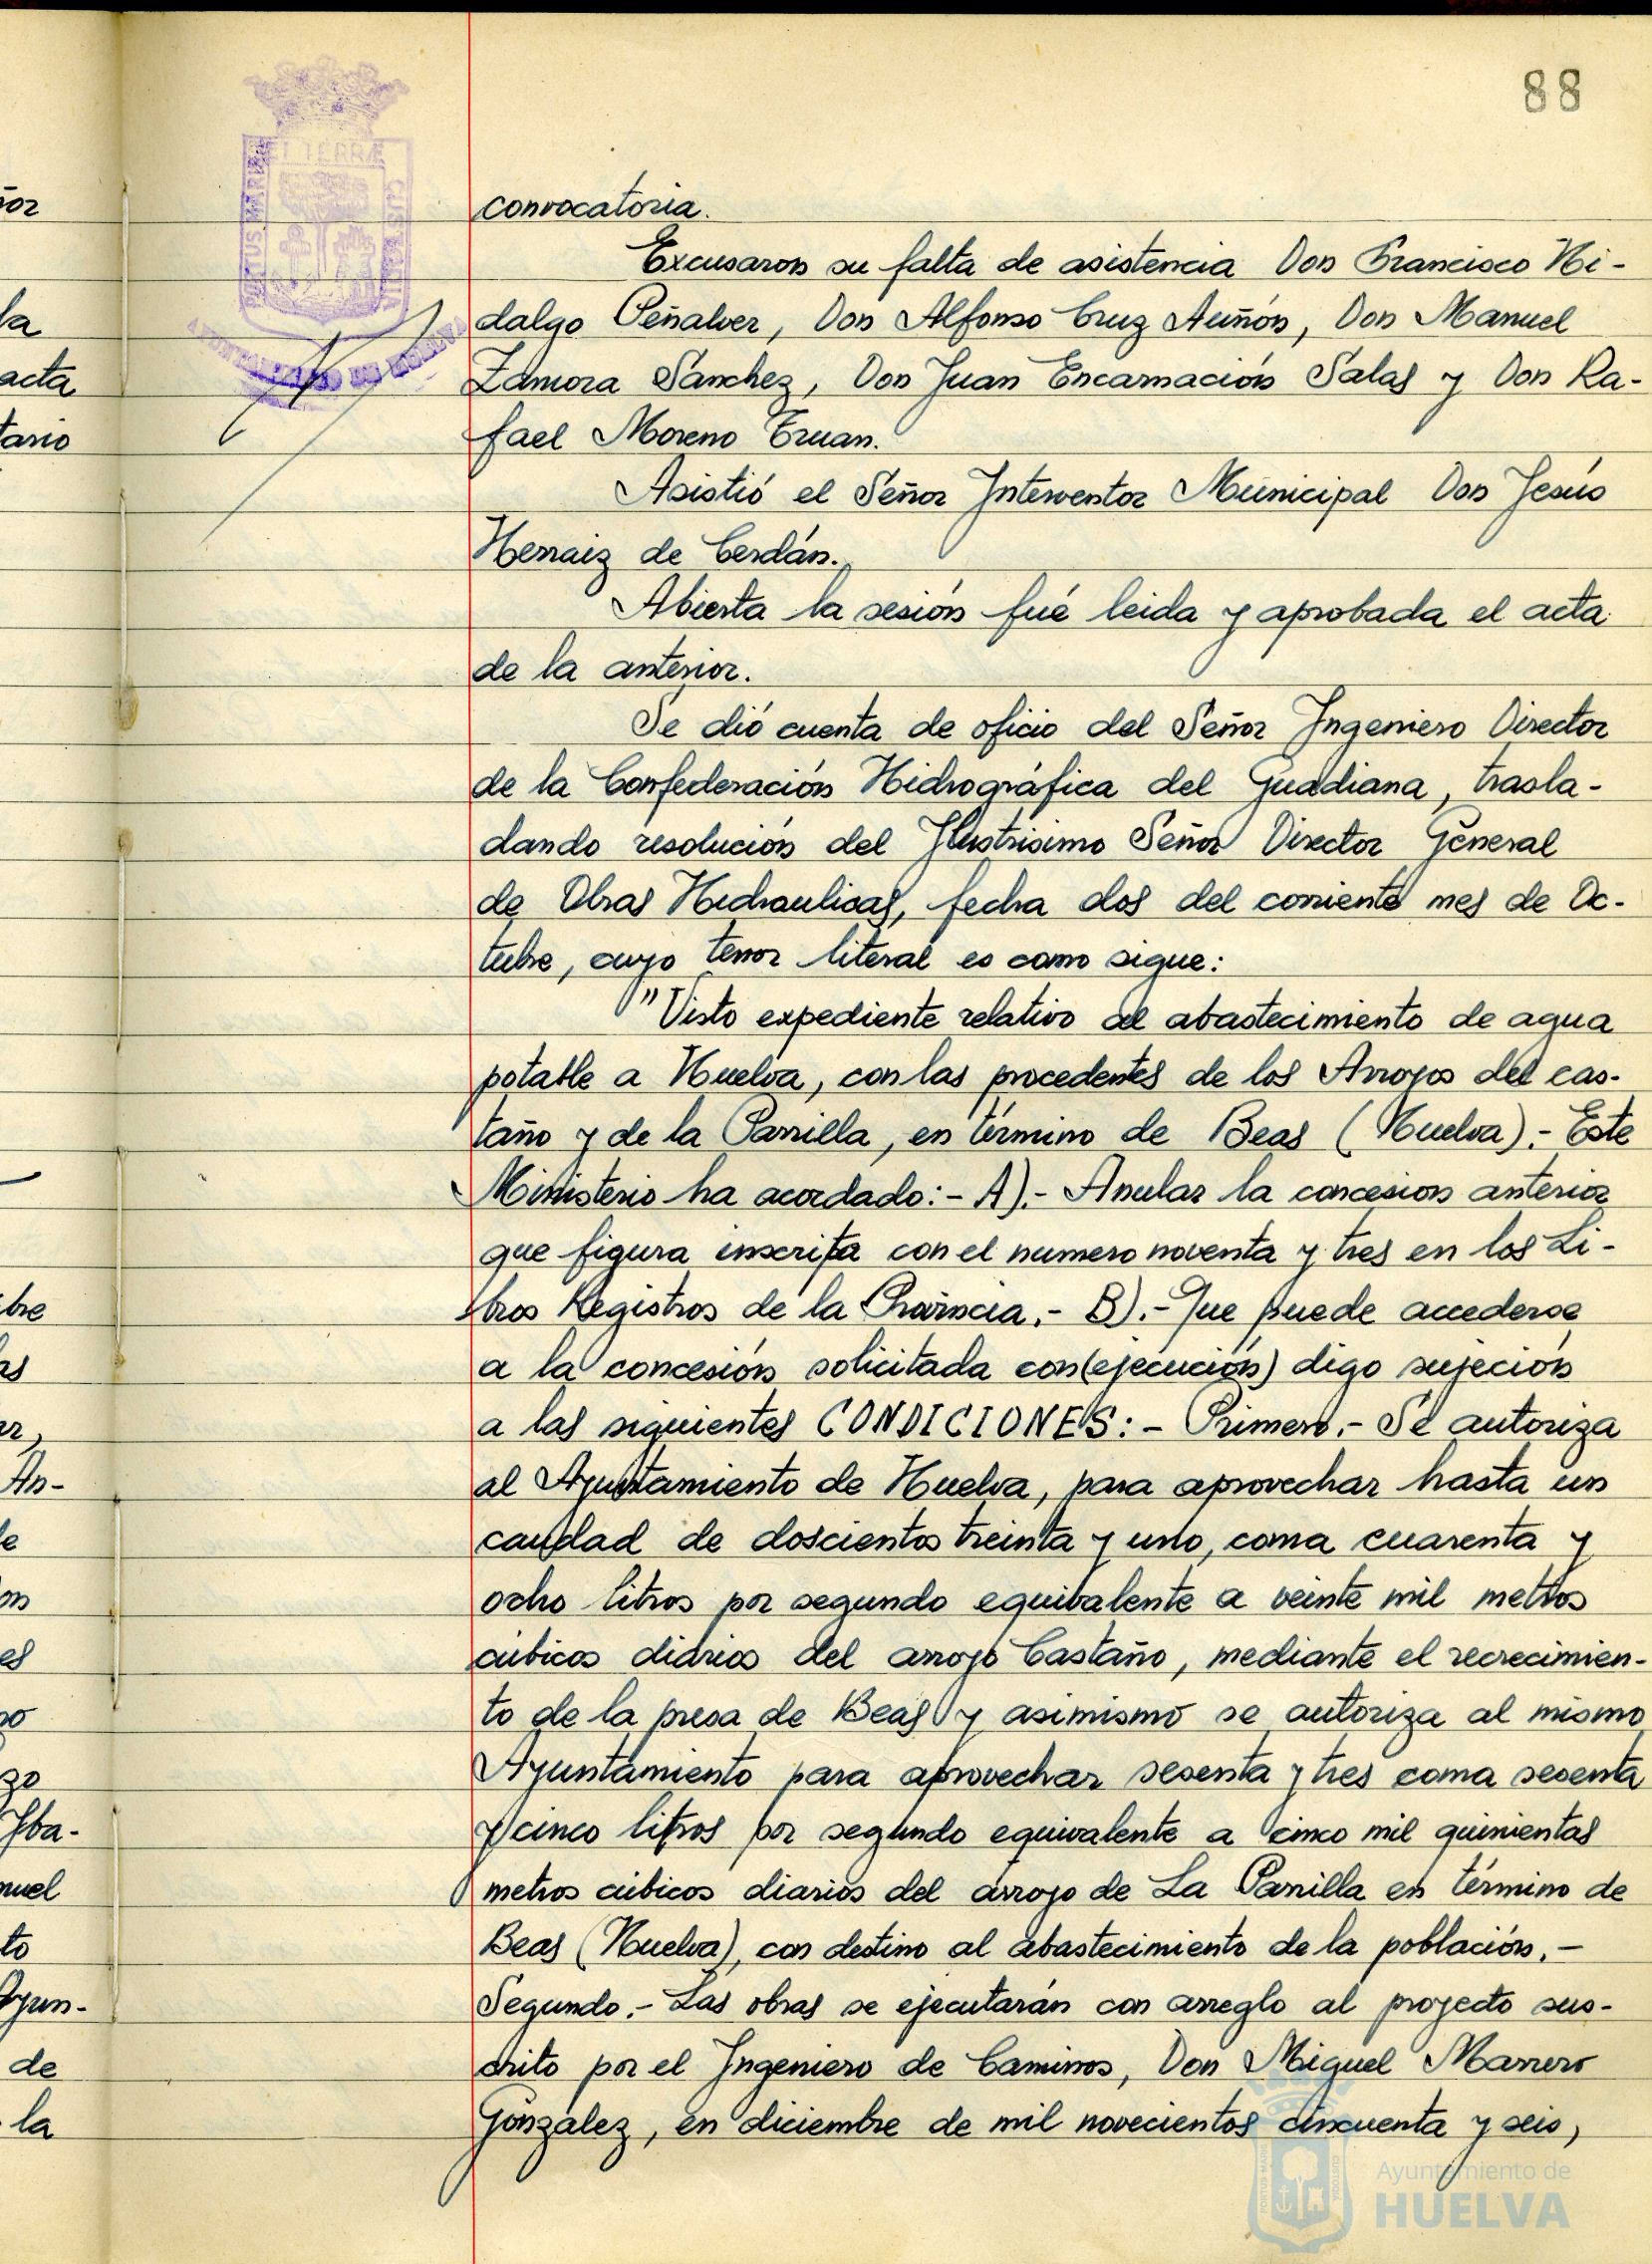 88
convocatoria.
Excusaron su falta de asistencia Don Francisco Hi-
dalgo Peñalver, Don Alfonso Cruz Auñón, Don Manuel
Zamora Sanchez, Don Juan Encarnación Salas y Don Ra-
fael Moreno Eruan.
Asistió el Señor Interventor Municipal Don Jesús
Hernaiz de Cerdán.
Abierta la sesión fué leida y aprobada el acta
de la anterior.
Se dió cuenta de oficio del Señor Ingeniero Director
de la Confederación Hidrográfica del Guadiana, trasla-
dando resolución del Ilustrisimo Señor Director General
de Obras Hidraulicas, fecha dos del corriente mes de Oc-
tubre, cuyo tenor literal es como sigue:
"Visto expediente relativo al abastecimiento de agua
potable a Huelva, con las procedentes de los Arroyos del cas-
taño y de la Parrilla, en término de Beas (Huelva).- Este
Ministerio ha acordado:- A).- Anular la concesion anterior
que figura inscrita con el numero noventa y tres en los Li-
bros Registros de la Provincia.- B).- Que puede accederse
a la concesión solicitada con (ejecución) digo sujeción
a las siguientes CONDICIONES:- Primero.- Se autoriza
al Ayuntamiento de Huelva, para aprovechar hasta un
caudad de doscientos treinta y uno, coma cuarenta y
ocho litros por segundo equivalente a veinte mil metros
cúbicos diarios del arroyo Castaño, mediante el recrecimien-
to de la presa de Beas y asimismo se autoriza al mismo
Ayuntamiento para aprovechar sesenta y tres coma sesenta
y cinco litros por segundo equivalente a cinco mil quinientas
metros cúbicos diarios del arroyo de La Parrilla en término de
Beas (Huelva), con destino al abastecimiento de la población.-
Segundo.- Las obras se ejecutarán con arreglo al proyecto sus-
crito por el Ingeniero de Caminos, Don Miguel Marrero
González, en diciembre de mil novecientos cincuenta y seis,
Ayuntamiento de
HUELVA